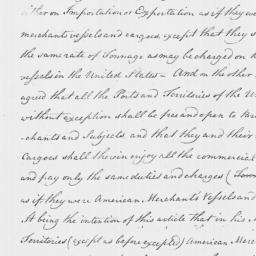 either on Importation or Exportation as if they we
merchants vessels and cargoes except that they s
the same rate of Tonnage as may be charged on
vessels in the United States – And on the other
agreed that all the Ports and Territories of the U
without exception shall be free and open to
-chants and Subjects and that they and their
Cargoes shall therein enjoy all the commercial
and pay only the same duties and charges (Ton
as if they were American Merchants Vessels and
It being the intention of this article that in his
Territories (except as before excepted) American Merc